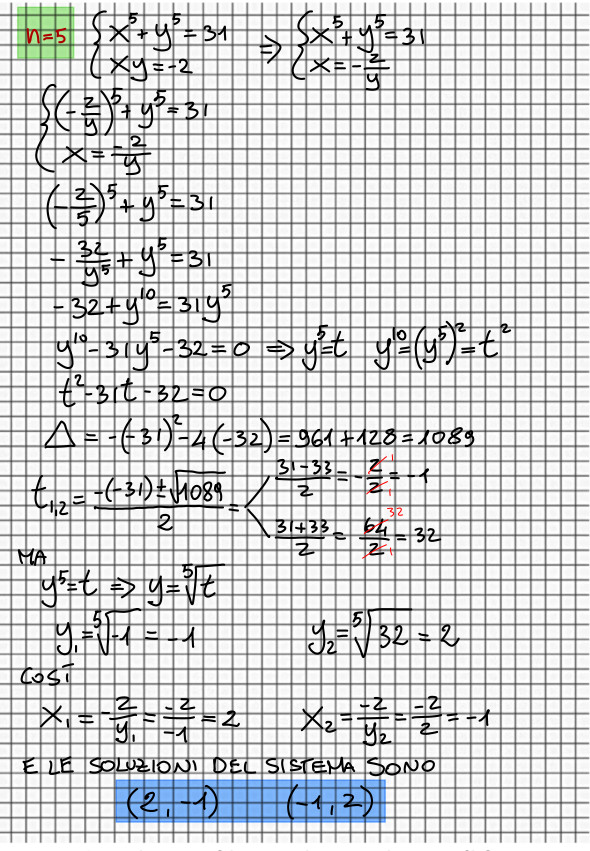 n=5 { x⁵+y⁵=31 ⇒ { x⁵+y⁵=31
xy=-2 x=-2/y
{ (-2/y)⁵+y⁵=31
x=-2/y
(-2/5)⁵+y⁵=31
-32/y⁵+y⁵=31
-32+y¹⁰=31y⁵
y¹⁰-31y⁵-32=0 ⇒ y⁵=t y¹⁰=(y⁵)²=t²
t²-31t-32=0
Δ=-(-31)²-4(-32)=961+128=1089
t₁,₂=(-(-31)±√1089)/2= (31-33)/2=-2/2=-1
(31+33)/2=64/2=32
MA
y⁵=t ⇒ y=⁵√t
y₁=⁵√-1=-1 y₂=⁵√32=2
COSÌ
x₁=-2/y₁=-2/-1=2 x₂=-2/y₂=-2/2=-1
E LE SOLUZIONI DEL SISTEMA SONO
(2,-1) (-1,2)